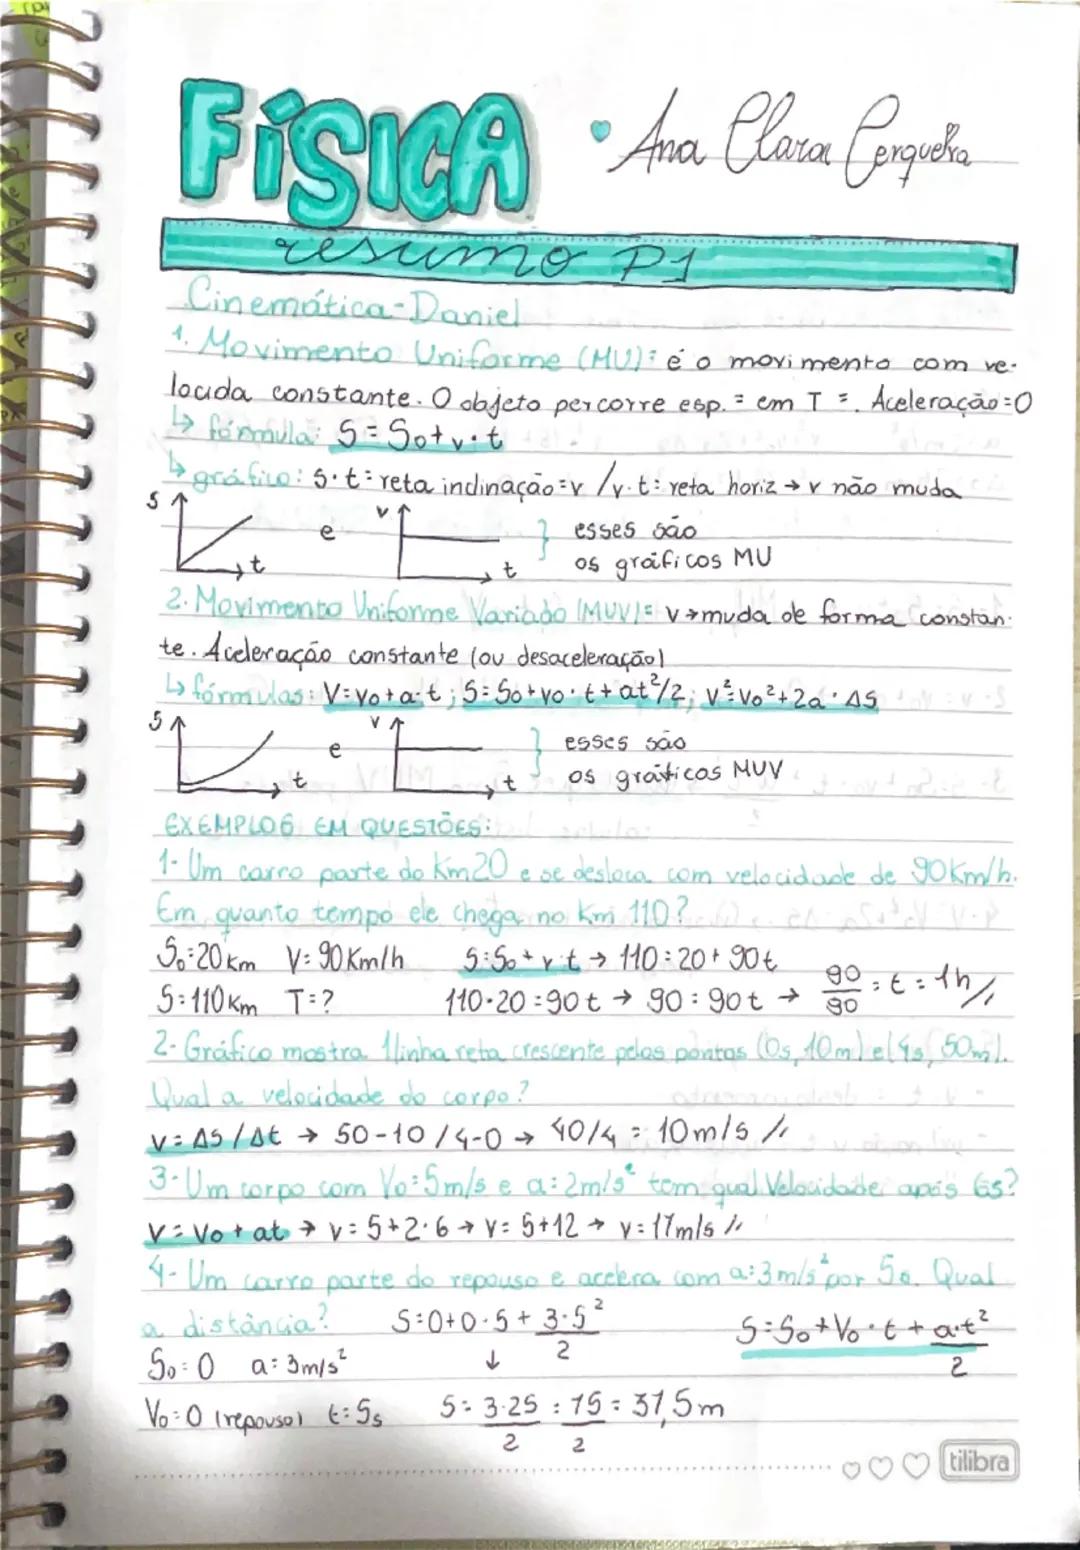 FÍSICA
• Ana Clara Cerqueira
resumo P1
Cinemática - Daniel
1. Movimento Uniforme (MU): é o movimento com ve-
locida constante. O objeto percorre esp. = em T =. Aceleração=0
↳ fórmula: S = S₀+v·t
↳ gráfico: s·t: reta inclinação=v / v·t: reta horiz → v não muda
S t e v t } esses são
os gráficos MU
2. Movimento Uniforme Variado (MUV)= v→muda de forma constan-
te. Aceleração constante (ou desaceleração)
↳ fórmulas: V=v₀+a·t ; S=S₀+v₀·t+at²/2; v²=v₀²+2a·ΔS
S t e v t } esses são
os gráficos MUV
EXEMPLOS EM QUESTÕES:
1- Um carro parte do Km20 e se desloca com velocidade de 90Km/h.
Em quanto tempo ele chega no Km 110?
S₀=20Km V=90Km/h S=S₀+v·t → 110=20+90t
S=110Km T=? 110-20=90t → 90=90t → 90/90 = t = 1h//
2- Gráfico mostra 1 linha reta crescente pelos pontos (0s, 10m) e (4s, 50m).
Qual a velocidade do corpo?
V=ΔS/Δt → 50-10/4-0 → 40/4 = 10m/s //
3- Um corpo com V₀=5m/s e a=2m/s² tem qual Velocidade após 6s?
V=V₀+at → v=5+2·6 → V=5+12 → v=17m/s //
4- Um carro parte do repouso e acelera com a=3m/s² por 5s. Qual
a distância? S=0+0·5+3·5²/2 S=S₀+V₀·t+a·t²/2
S₀=0 a=3m/s² ↓
V₀=0 (repouso) t=5s S=3·25/2 = 75/2 = 37,5m
tilibra